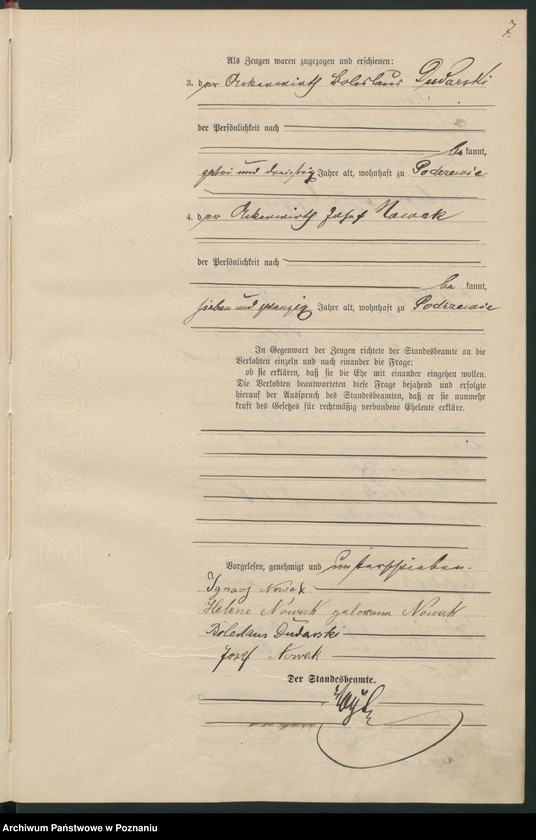 7.
Als Zeugen waren zugezogen und erschienen:
3. der Ackerwirth Boleslaus Dudarski
der Persönlichkeit nach
be kannt,
zwei und dreißig Jahre alt, wohnhaft zu Podrzewie
4. der Ackerwirth Josef Nowak
der Persönlichkeit nach
be kannt,
sieben und zwanzig Jahre alt, wohnhaft zu Podrzewie
In Gegenwart der Zeugen richtete der Standesbeamte an die
Verlobten einzeln und nach einander die Frage:
ob sie erklären, daß sie die Ehe mit einander eingehen wollen.
Die Verlobten beantworteten diese Frage bejahend und erfolgte
hierauf der Ausspruch des Standesbeamten, daß er sie nunmehr
kraft des Gesetzes für rechtmäßig verbundene Eheleute erkläre.
Vorgelesen, genehmigt und unterschrieben.
Ignacy Nowak
Helene Nowak geborene Nowak
Boleslaus Dudarski
Josef Nowak
Der Standesbeamte.
Archiwum Państwowe w Poznaniu